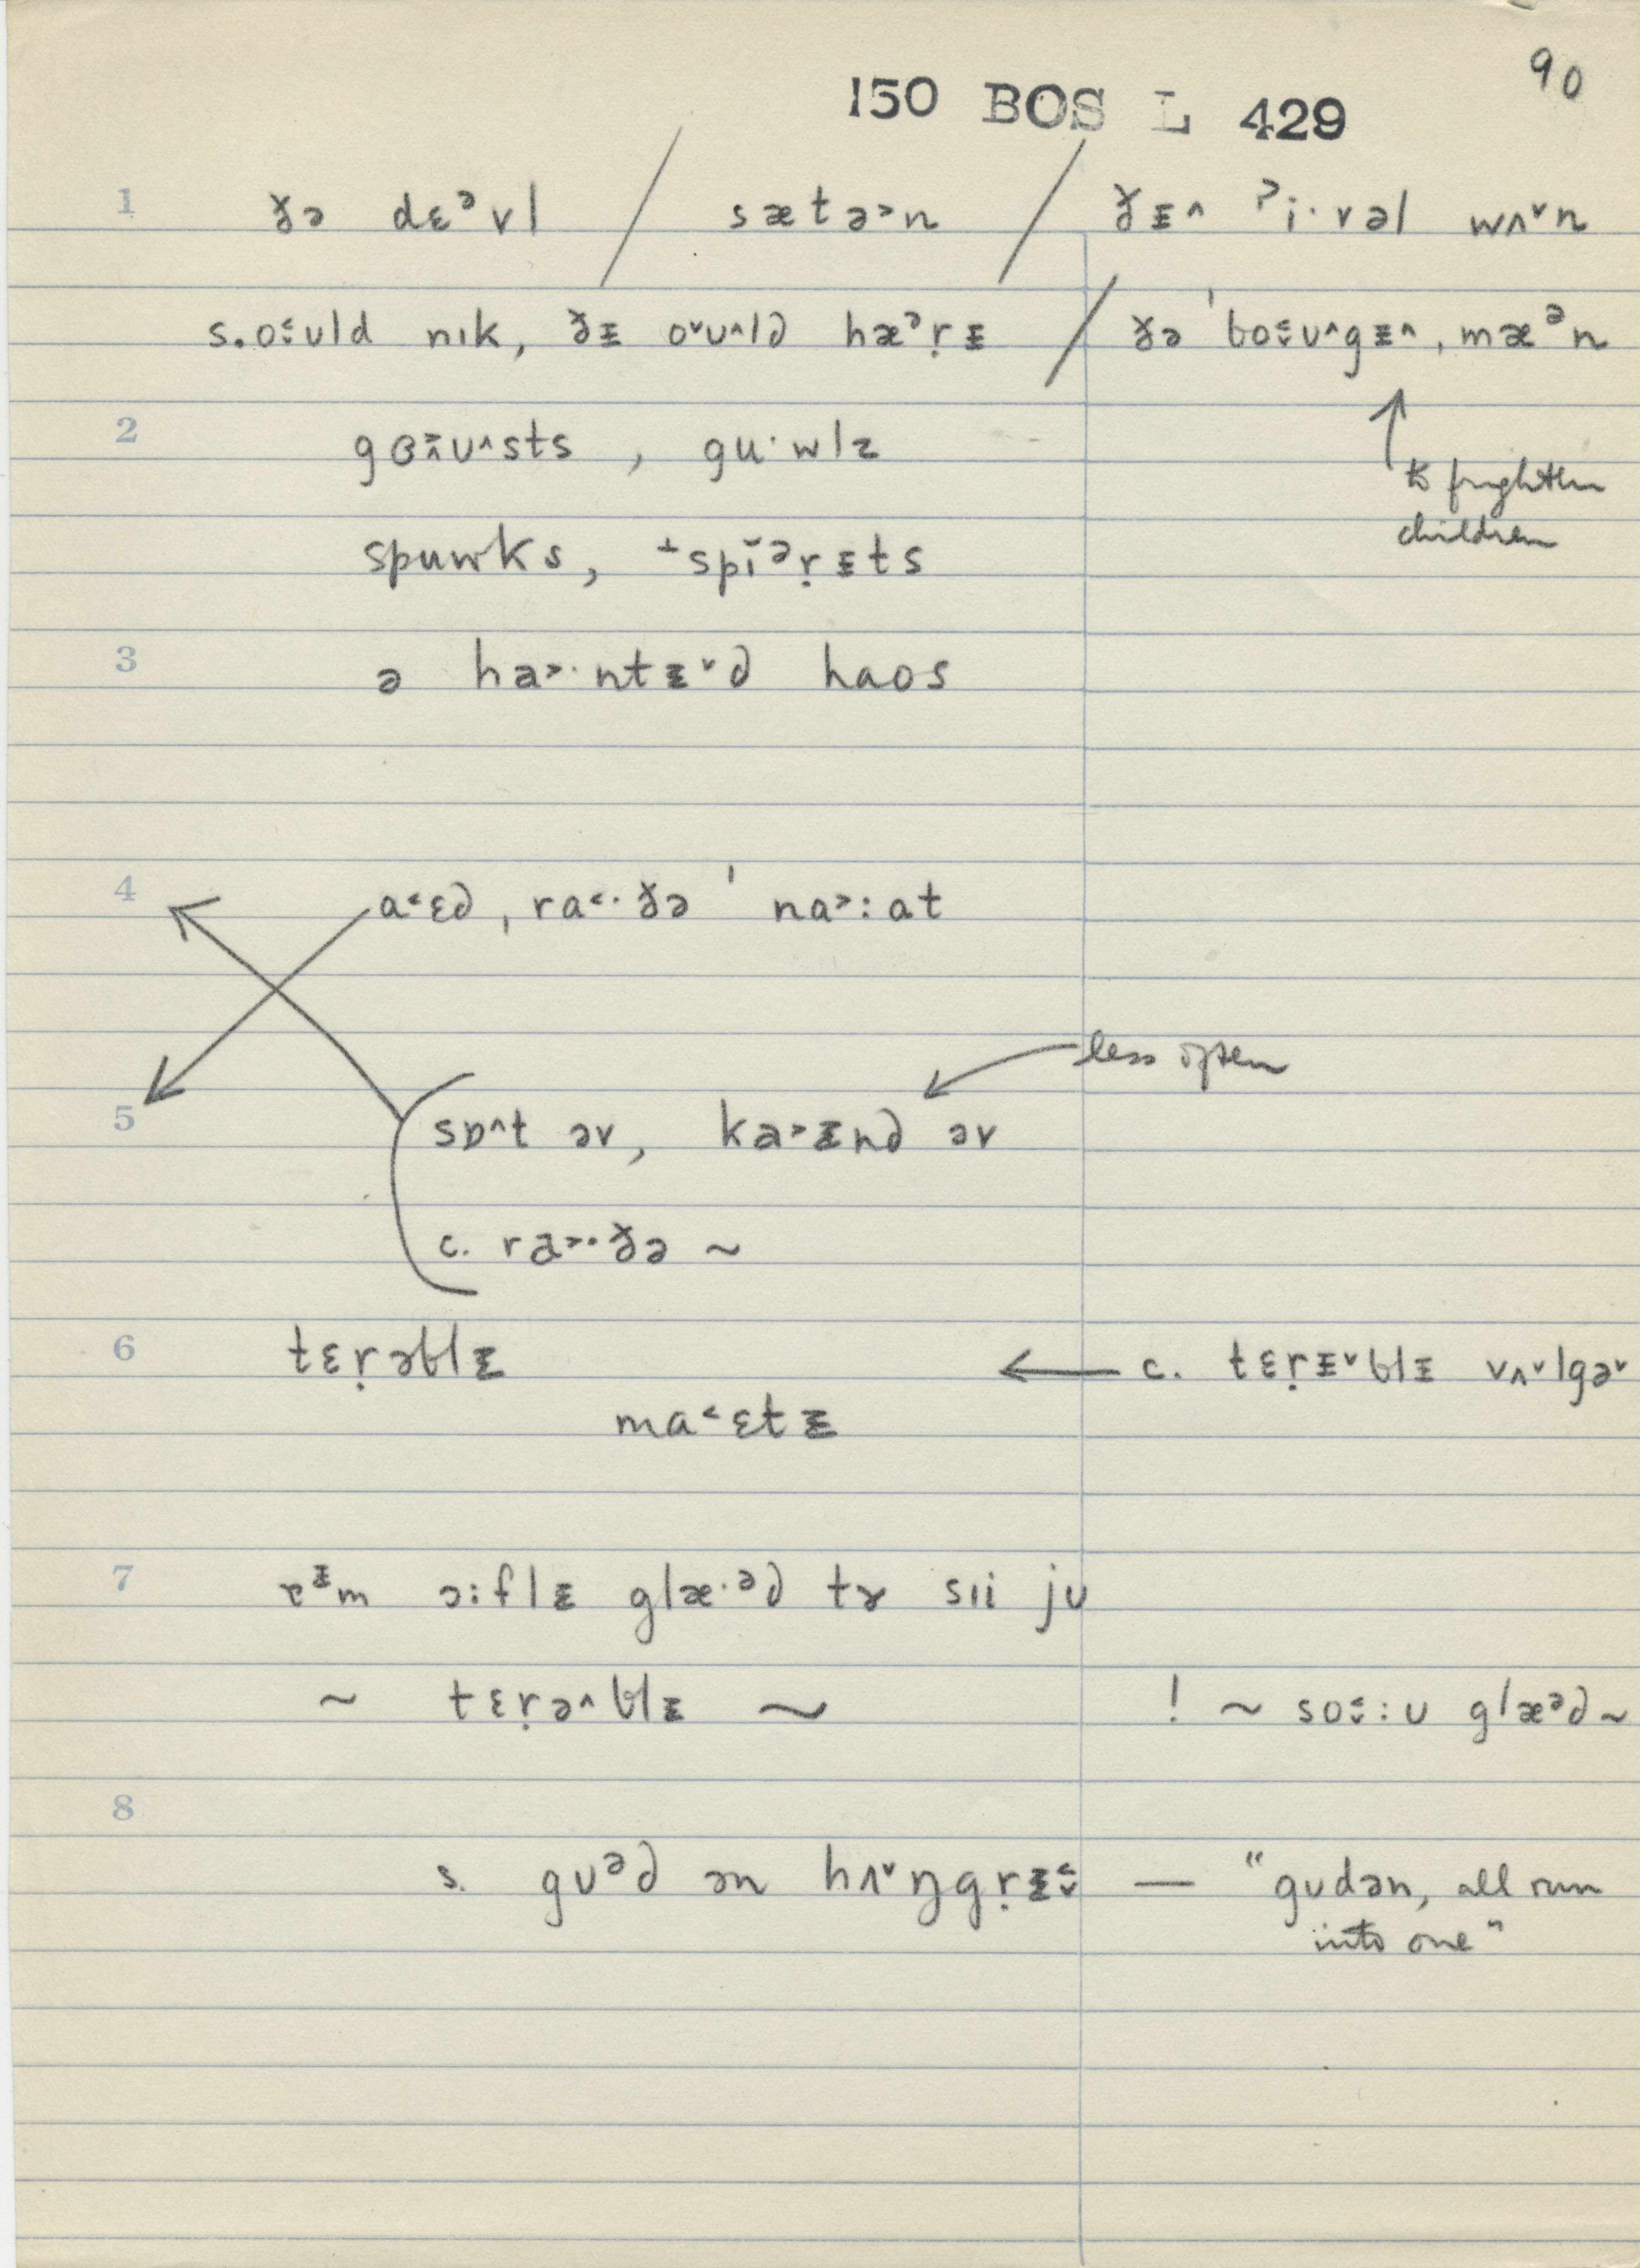 90
150 BOS L 429
1 ɣə dɛᵊvl / sætə˃n / ɣᵻ^ ˀi·vəl wʌ˅n
s. o˂˅ʊld nɪk, ɣᵻ o˅ʊ^ld hæᵊṛᵻ / ɣə ˈbo˂˅ʊ^gᵻ^ˌmæᵊn
to frighten
children
2 gɵ˃^ʊ^sts , gu·wlz
spuwks, +spĭᵊṛᵻts
3 ə ha˃·ntᵻ˅d haos
4 a˂ɛd, ˌra˂·ɣə ˈna˃:at
less often
5 sɒ^t əv, ka˃ᵻnd əv
c. ra˃·ɣə ~
6 tɛṛəblᵻ ← c. tɛṛᵻ˅blᵻ vʌ˅lgə˅
ma˂ɛtᵻ
7 ɐᵻm ɔ:flᵻ glæ·ᵊd tɤ sɪi jʊ
~ tɛṛə^blᵻ ~ ! ~ so˂˅:ʊ glæᵊd ~
8
s. gʊᵊd ən hʌ˅ŋgṛᵻ˂˅ — "gʊdən, all run
into one"